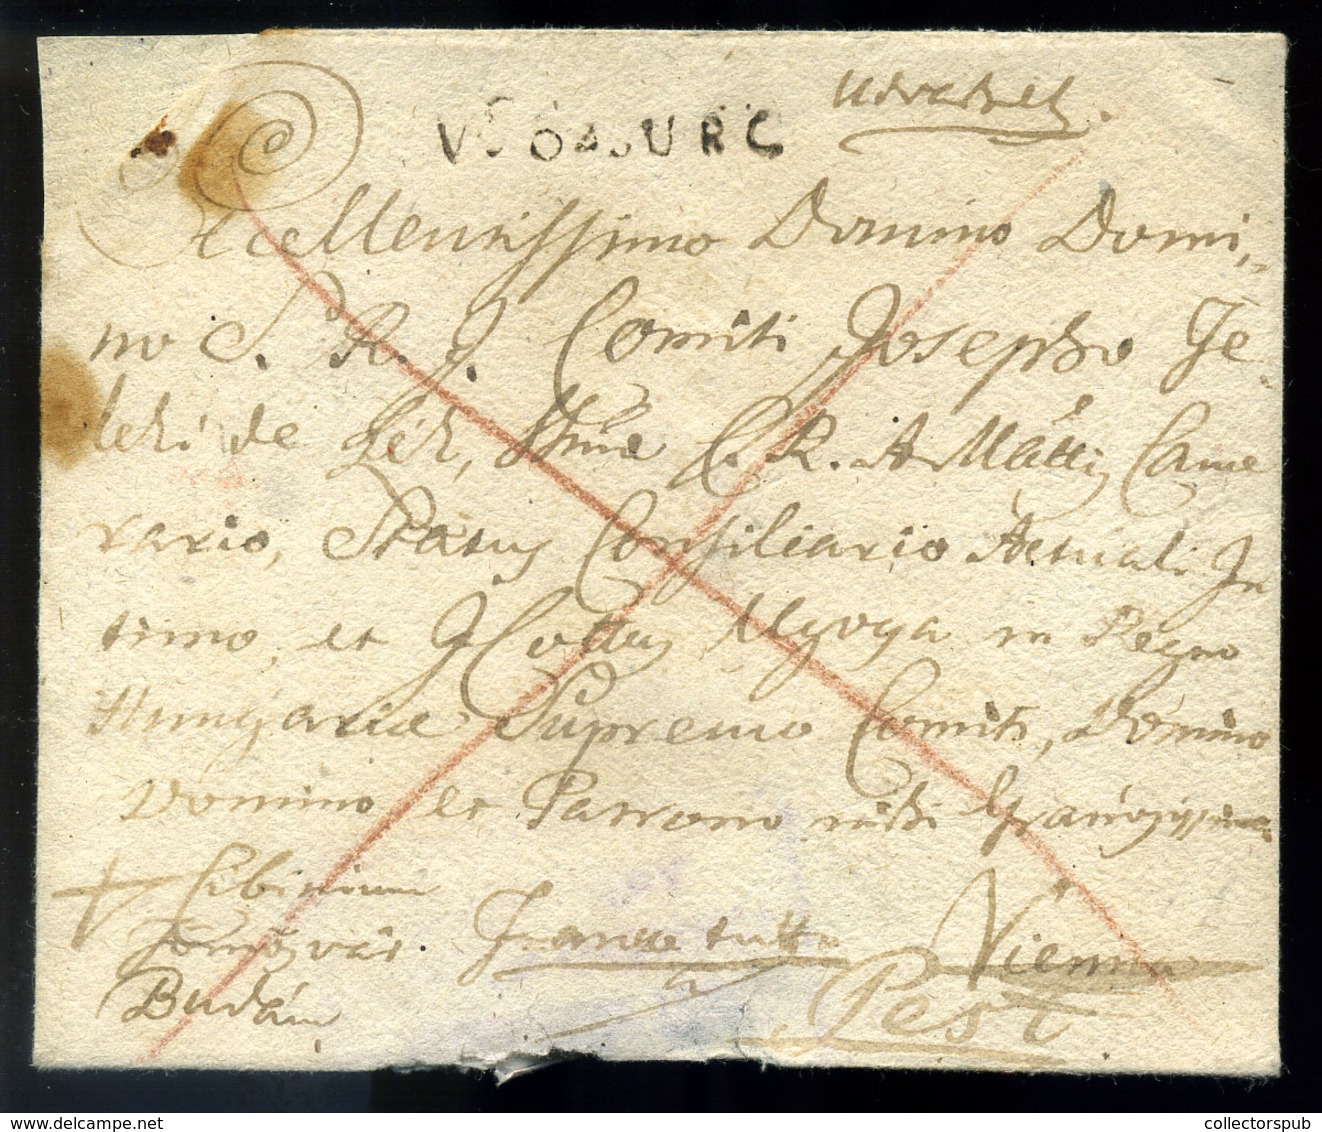 Udvarhely.
Excellentissimo Domino Domi„
no S. R. I. Comiti Josepho Te
leki de Szék, Sacrae C. R. A. Mattis Came
rario, Status Consiliario Actuali In
timo, et I. Cottus Ugoga in Regno
Hungariae Supremo Comiti, Domino
Domino et Patrono mihi Gratiosissimo
Cibinium
Temesvár.
Budán
Franco tutto
a
Vienna
Pest
collectorspub